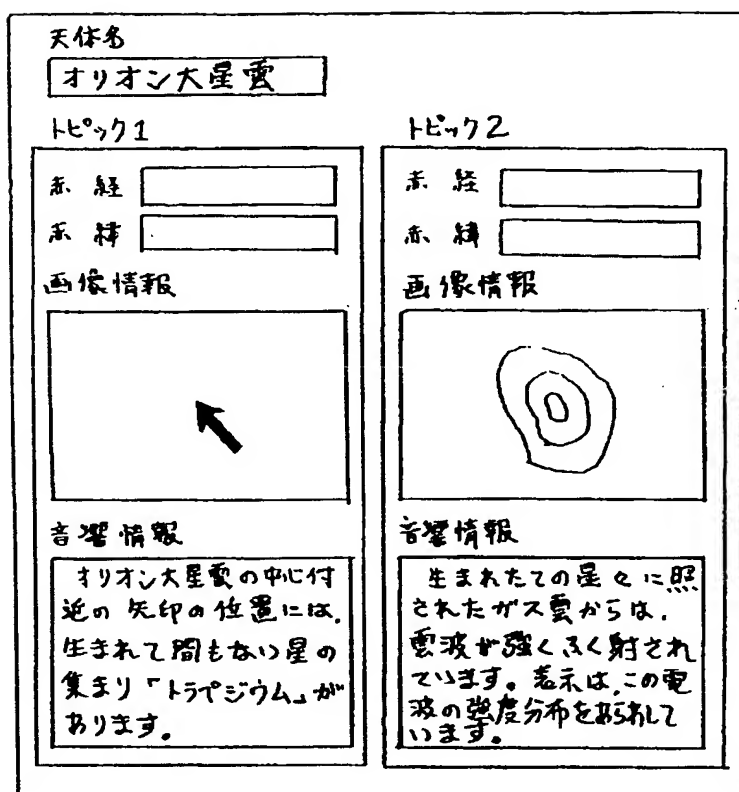 天体名
オリオン大星雲
トピック1
赤経
赤緯
画像情報
音響情報
オリオン大星雲の中心付
近の矢印の位置には、
生まれて間もない星の
集まり「トラペジウム」が
あります。
トピック2
赤経
赤緯
画像情報
音響情報
生まれたての星々に照
されたガス雲からは、
電波が強くふく射され
ています。表示は、この電
波の強度分布をあらわして
います。